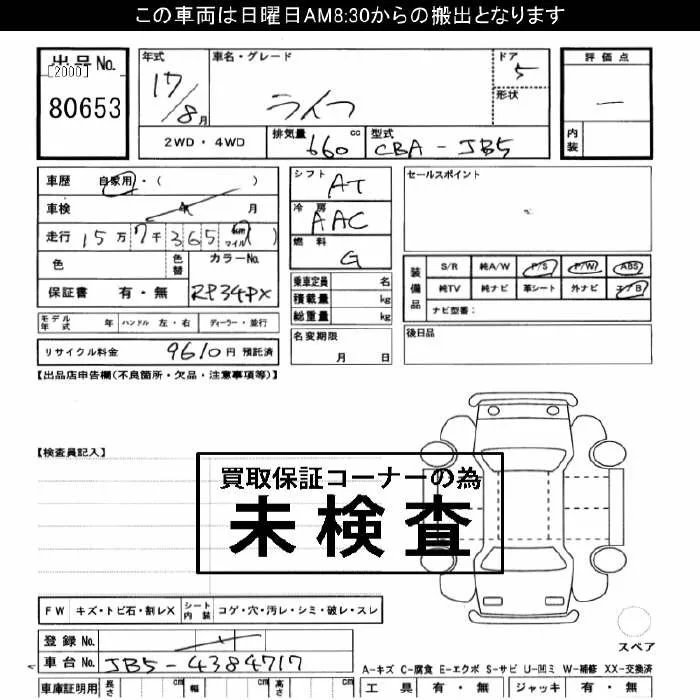 この車両は日曜日AM8:30からの搬出となります
出品No.
[2000]
80653
年式
17/8月
車名・グレード
ライフ
ドア
5
形状
評価点
一
内装
2WD・4WD
排気量
660 cc
型式
CBA-JB5
車歴 自家用・( )
車検 年 月
走行 15万7千365 km マイル ( )
色
色替
カラーNo.
保証書 有・無
RP34PX
シフト
AT
冷房
AAC
燃料
G
乗車定員 名
積載量 kg
総重量 kg
セールスポイント
装備品
S/R 純A/W P/S P/W ABS
純TV 純ナビ 革シート 外ナビ エアB
ナビ型番:
モデル年式 年 ハンドル 左・右 ディーラー・並行
名変期限
月 日
後日品
リサイクル料金 9610円 預託済
【出品店申告欄(不良箇所・欠品・注意事項等)】
【検査員記入】
買取保証コーナーの為
未検査
FW キズ・トビ石・割レX シート内装 コゲ・穴・汚レ・シミ・破レ・スレ
登録No.
車台No. JB5-4384717
スペア
A-キズ C-腐食 E-エクボ S-サビ U-凹ミ W-補修 XX-交換済
車庫証明用 長さ cm 幅 cm 高さ cm
工具 有・無 ジャッキ 有・無